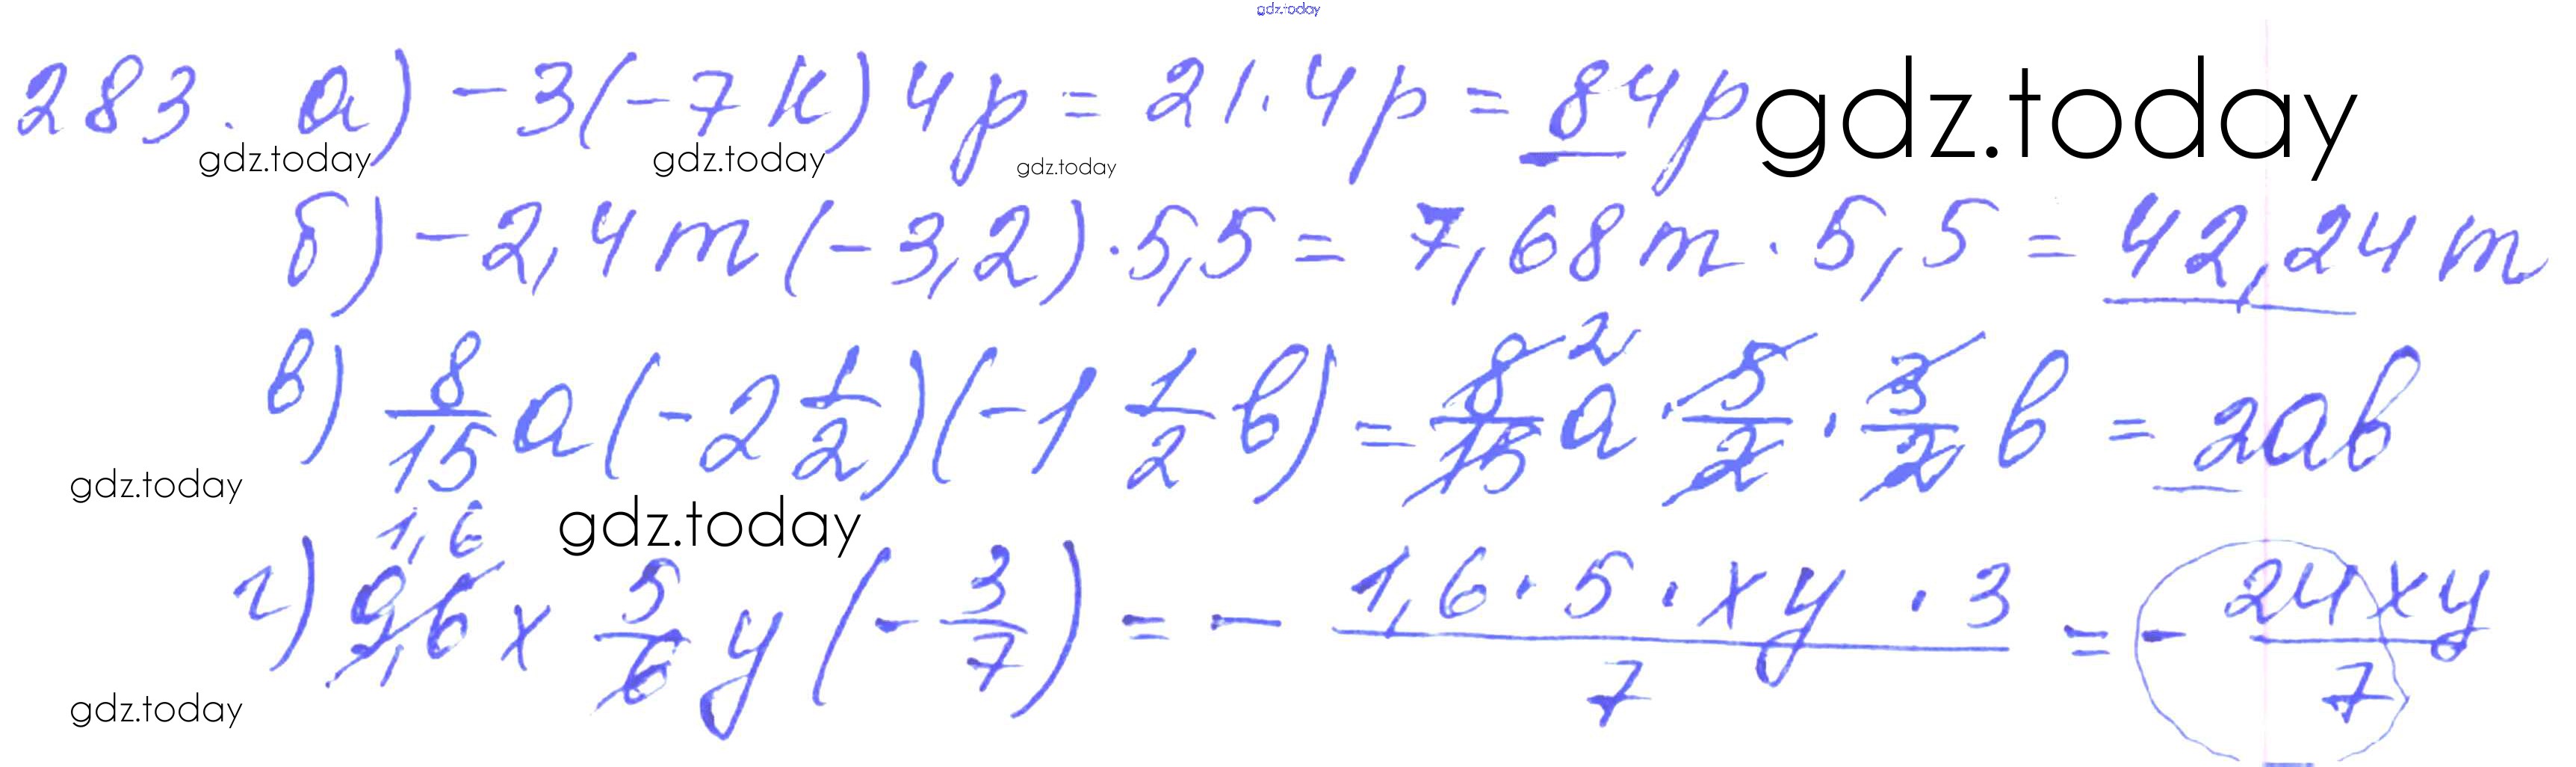 gdz.today
283. а) -3(-7k)4p = 21·4p = 84p gdz.today
gdz.today gdz.today gdz.today
б) -2,4m(-3,2)·5,5 = 7,68m·5,5 = 42,24m
в) 8/15 a(-2 1/2)(-1 1/2 b) = 8/15 2 a · 5/2 · 3/2 b = 2ab
gdz.today
gdz.today
г) 1,6 9,6x 5/6 y(-3/7) = - 1,6·5·xy·3/7 = - 24xy/7
gdz.today